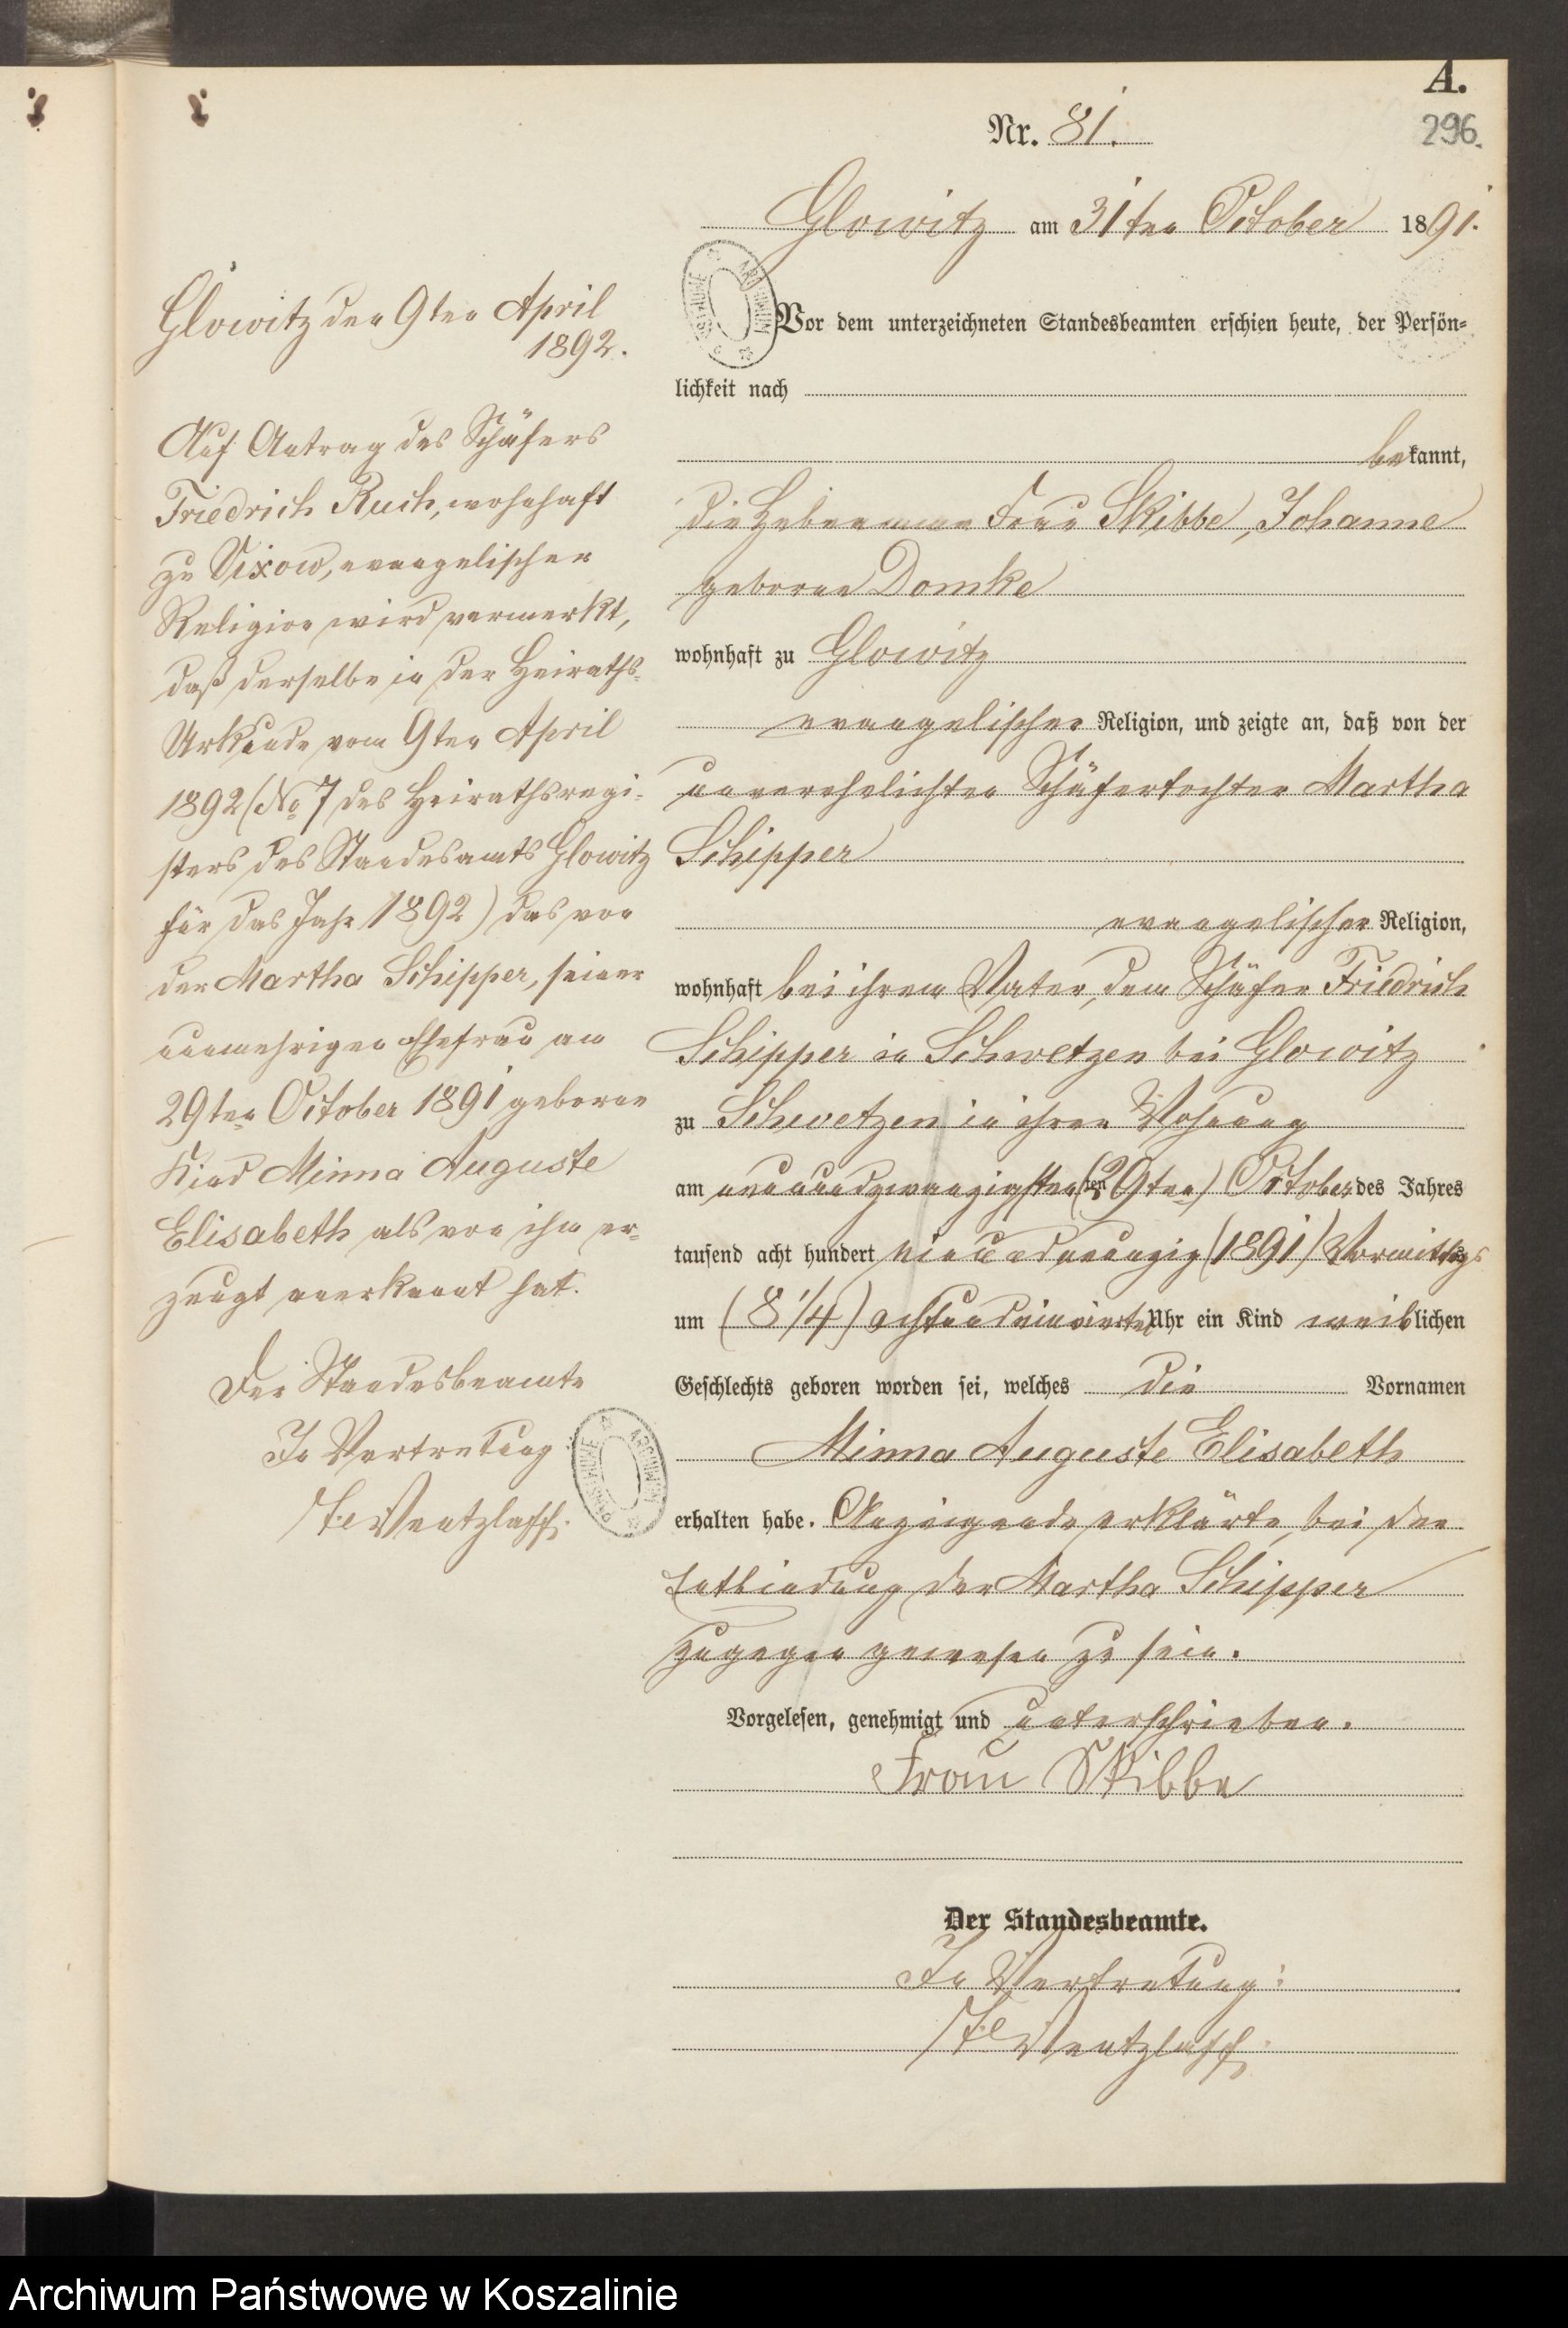 A.
Nr. 81.
296.
Glowitz am 31ten October 1891.
Vor dem unterzeichneten Standesbeamten erschien heute, der Persön=
lichkeit nach
bekannt,
die Hebeamme Frau Skibbe, Johanne
geborne Domke
wohnhaft zu Glowitz
evangelischer Religion, und zeigte an, daß von der
unverehelichten Schäfertochter Martha
Schipper
evangelischer Religion,
wohnhaft bei ihrem Vater, dem Schäfer Friedrich
Schipper in Schwetzen bei Glowitz
zu Schwetzen in ihrer Wohnung
am neunundzwanzigsten (29ten) October des Jahres
tausend acht hundert einundneunzig (1891) Vormittags
um (8 1/4) achtundeinviertel Uhr ein Kind weiblichen
Geschlechts geboren worden sei, welches die Vornamen
Minna Auguste Elisabeth
erhalten habe. Anzeigende erklärte, bei der
Entbindung der Martha Schipper
zugegen gewesen zu sein.
Vorgelesen, genehmigt und unterschrieben.
Frau Skibbe
Der Standesbeamte.
In Vertretung:
Wentzlaff.
Glowitz den 9ten April
1892.
Auf Antrag des Schäfers
Friedrich Ruch, wohnhaft
zu Vixow, evangelischer
Religion wird vermerkt,
daß derselbe in der Heiraths=
Urkunde vom 9ten April
1892 (No 7 des Heirathsregi=
sters des Standesamts Glowitz
für das Jahr 1892) das von
der Martha Schipper, seiner
nunmehrigen Ehefrau am
29ten October 1891 geborne
Kind Minna Auguste
Elisabeth als von ihm er=
zeugt anerkannt hat.
Der Standesbeamte
In Vertretung
Wentzlaff.
Archiwum Państwowe w Koszalinie